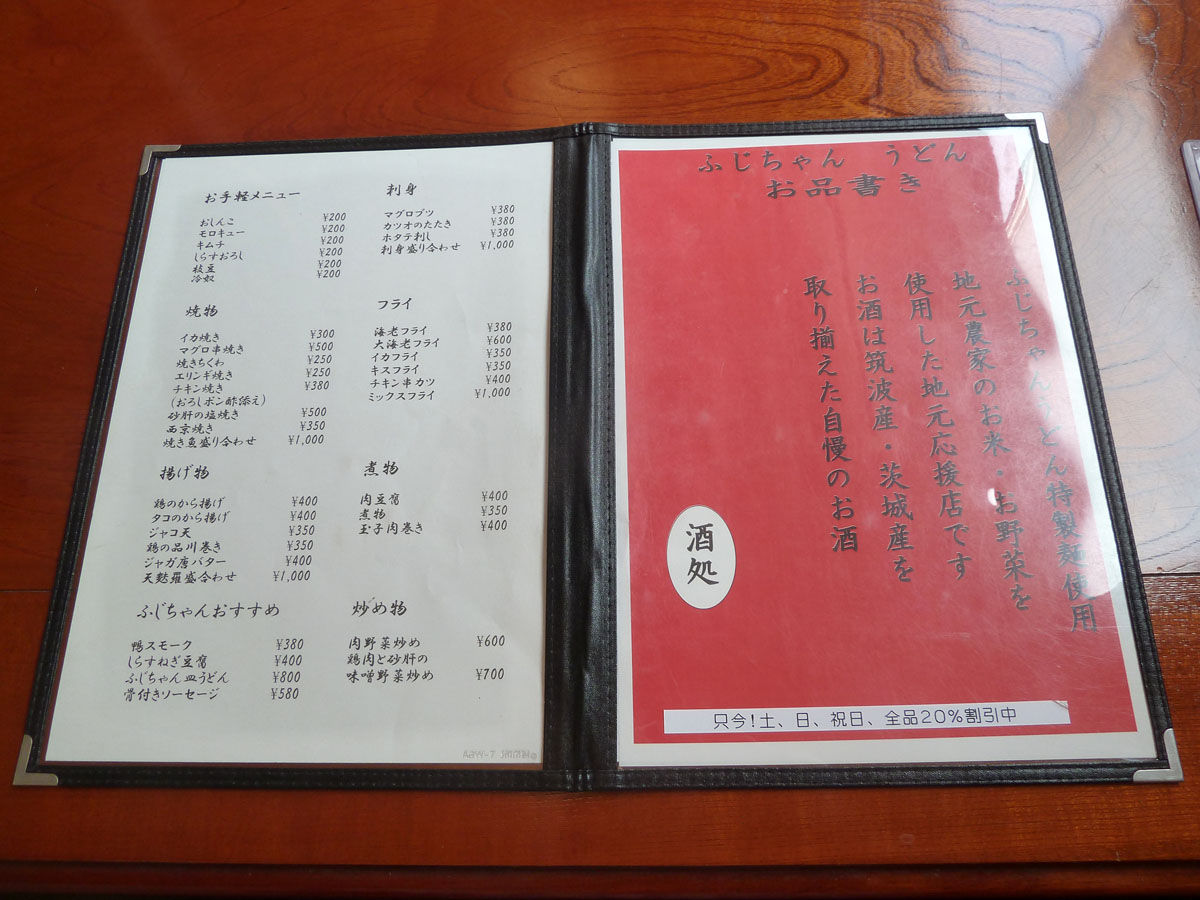 お手軽メニュー
おしんこ ¥200
モロキュー ¥200
キムチ ¥200
しらすおろし ¥200
枝豆 ¥200
冷奴 ¥200
刺身
マグロブツ ¥380
カツオのたたき ¥380
ホタテ刺し ¥380
刺身盛り合わせ ¥1,000
焼物
イカ焼き ¥300
マグロ串焼き ¥500
焼きちくわ ¥250
エリンギ焼き ¥250
チキン焼き ¥380
(おろしポン酢添え)
砂肝の塩焼き ¥500
西京焼き ¥350
焼き魚盛り合わせ ¥1,000
フライ
海老フライ ¥380
大海老フライ ¥600
イカフライ ¥350
キスフライ ¥350
チキン串カツ ¥400
ミックスフライ ¥1,000
揚げ物
鶏のから揚げ ¥400
タコのから揚げ ¥400
ジャコ天 ¥350
鶏の品川巻き ¥350
ジャガ唐バター ¥400
天麩羅盛合わせ ¥1,000
煮物
肉豆腐 ¥400
煮物 ¥350
玉子肉巻き ¥400
ふじちゃんおすすめ
鴨スモーク ¥380
しらすねぎ豆腐 ¥400
ふじちゃん皿うどん ¥800
骨付きソーセージ ¥580
炒め物
肉野菜炒め ¥600
鶏肉と砂肝の
味噌野菜炒め ¥700
ふじちゃん うどん
お品書き
ふじちゃんうどん特製麺使用
地元農家のお米・お野菜を
使用した地元応援店です
お酒は筑波産・茨城産を
取り揃えた自慢のお酒
酒処
只今!土、日、祝日、全品20%割引中